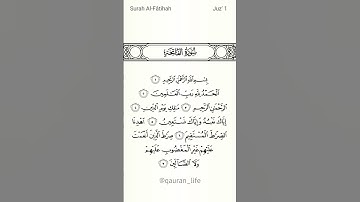 Surah Al-Fātihah Juz' 1
سُورَةُ الفَاتِحَةِ
بِسْمِ اللَّهِ الرَّحْمَٰنِ الرَّحِيمِ ١
الْحَمْدُ لِلَّهِ رَبِّ الْعَالَمِينَ ٢
الرَّحْمَٰنِ الرَّحِيمِ ٣ مَالِكِ يَوْمِ الدِّينِ ٤
إِيَّاكَ نَعْبُدُ وَإِيَّاكَ نَسْتَعِينُ ٥ اهْدِنَا
الصِّرَاطَ الْمُسْتَقِيمَ ٦ صِرَاطَ الَّذِينَ أَنْعَمْتَ
عَلَيْهِمْ غَيْرِ الْمَغْضُوبِ عَلَيْهِمْ
وَلَا الضَّالِّينَ ٧
@qauran_life